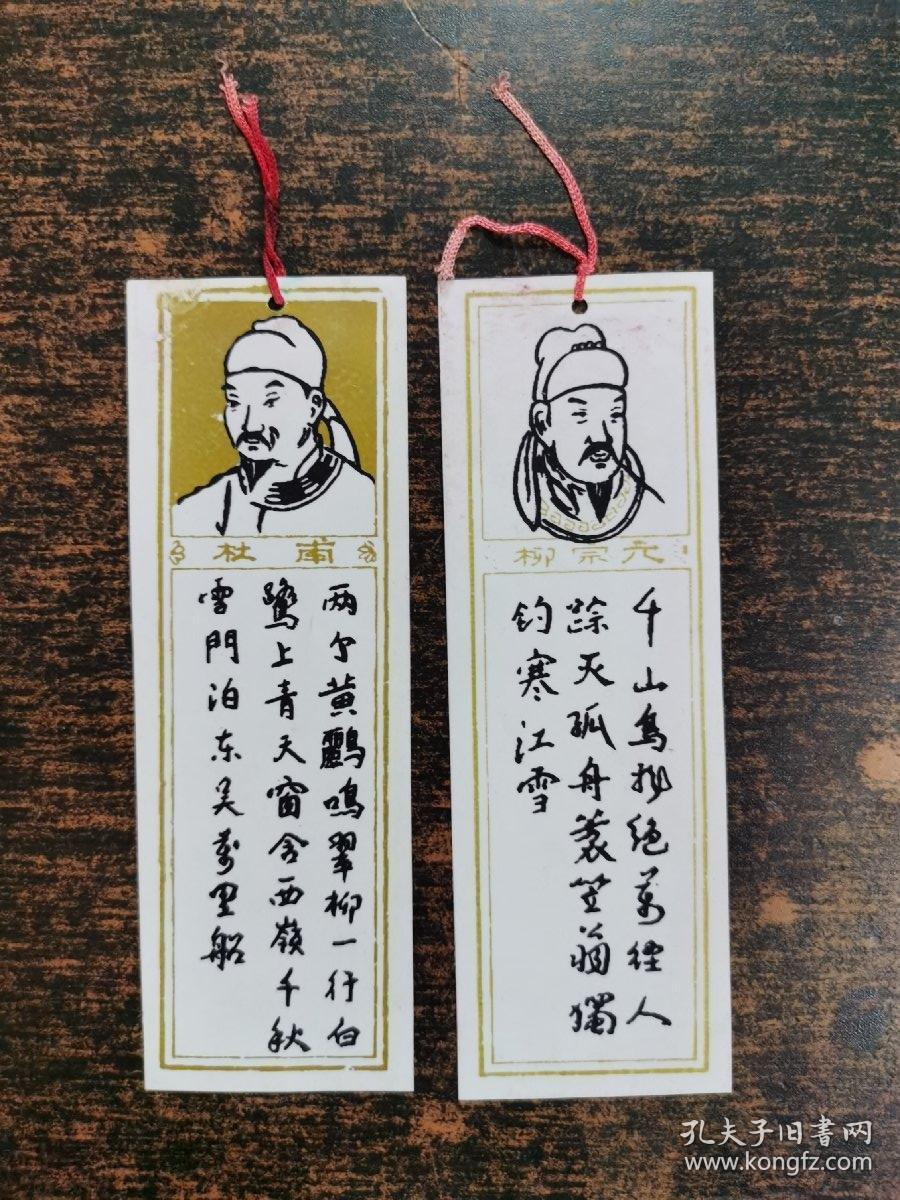 杜甫
两个黄鸝鳴翠柳一行白
鷺上青天窗含西嶺千秋
雪門泊东吴萬里船
柳宗元
千山鳥飛绝萬徑人
踪灭孤舟蓑笠翁獨
钓寒江雪
孔夫子旧書网
www.kongfz.com